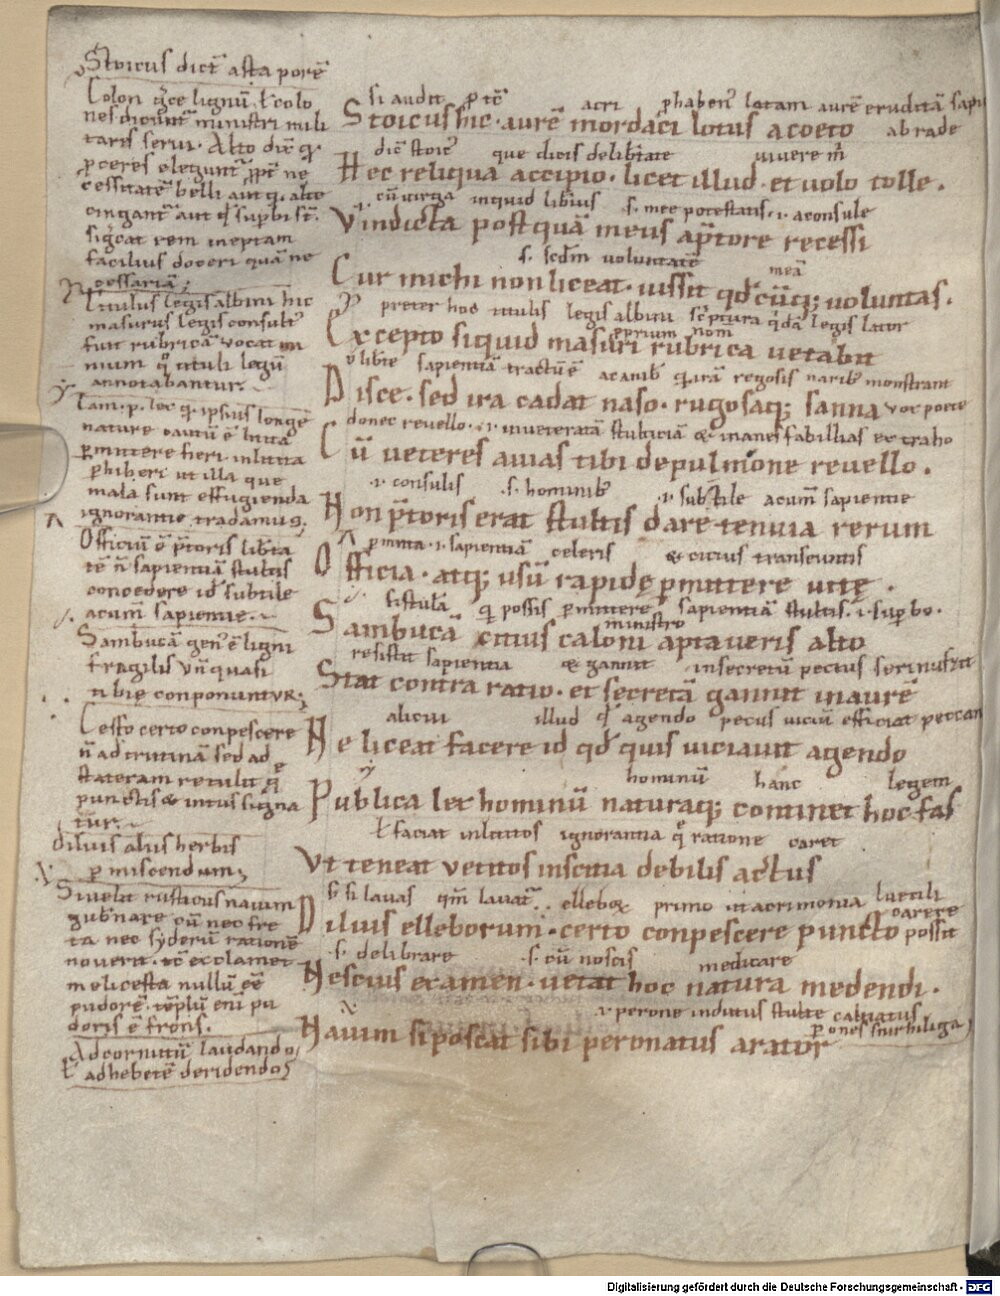 Stoicus dict̄ asta porē
Colon grece lignū, ł colo
nes dicunt̄ ministri mili
taris servi. Alto diē q̄
ꝓceres elegunt̄ ꝓpt̄ ne
cessitatē belli aut q̄ alte
cingant̄ aut q̄ suꝑbi st̄.
sigcat rem ineptam
facilius doceri quā ne
cessariā;
Titulus legis albini hic
masurus legis consult᷒
fuit rubricā vocat om
nium q̄ tituli legū
annotabantur.
Tam .p. lex q̄ ipsius longe
nature cautū ē
ꝑmittere fieri inlicita
ꝓhiberi ut illa que
mala sunt effugienda
ignorantie tradamus;
Officiū ē p̄toris liberta
tē n̄ sapientiā stultis
concedere id subtile
acum̄ sapientie.
Sambucā gen᷒ ē ligni
fragilis vn̄ quasi
conponuntur;
Cesso certo conpescere
n̄ ad trutinā sed ad
stateram retulit q̄
punctis & intus signa
tur.
diluis aliis herbis
ꝑmiscendum;
Si velit rusticus navim
gub̄nare cū nec fre
ta nec syderū rationē
noverit. tc̄ exclamet
melicesta nullū eē
pudorē. tēplū eni pu
doris ē frons.
Ad cornutū laudando
ł adhebetē deridendo;
si audit ꝓ tē acri ꝓhaben᷒ lotam aurē eruditā
Stoicus hic. aurē mordaci lotus acoeto abrade
diē stoic᷒ que dicis delibtate vivere m̄
Hec reliqua accipio. licet illud. et uolo tolle.
.i. cū virga inquid lib̄ius .s. mee potestatis .i. a consule
Vindicta postquā meus ap̄tore recessi
.s. scdm voluntatē meā
Cur michi non liceat. iussit qđ cūq; uoluntas.
preter hoc titulis legis albini sc̄ptura q̄dā legis lator
ꝓprium nom̄
Excepto siquid masuri rubrica uetabit
sapientiā tractū ē q̄ irā regosis narib᷒ monstrant
Disce. sed ira cadat naso. rugosaq; sanna
donec revello. .i. inveteratā stulticiā & inanes fabillias extraho
Cū veteres avias tibi de pulmone revello.
.i. consulis .s. hominib᷒ .i. subtile acum̄ sapientie
Non p̄toris erat stultis dare tenuia rerum
ꝑmitta .i. sapientiā celeris & citius transeuntis
Officia. atq; usū rapidę ꝑmittere vitę.
fistulā q̄ possis ꝑmittere sapientiā stultis .i. suꝑbo.
ministro
Sambucā citius caloni aptaveris alto
resistit sapientia & gannit insecretū pectus
Stat contra ratio. et secretā gannit in aurē
alicui illud qđ agendo pecus viciū efficiat
Ne liceat facere id qđ quis viciavit agendo
hominū hanc legem
Publica lex hominū naturaq; continet hoc fas
ł faciat inlicitos ignorantia q̄ ratione caret
Vt teneat vetitos inscitia debilis actus
si lavas qm̄ lavat̄.. ellebor primo itacrimonia
carere
Diluis elleborum. certo conpescere puncto possit
.s. delibrare .s. cū noscis medicare
Nescius examen. uetat hoc natura medendi.
.i. perone indutus stulte calciatus
Navim si poscat sibi peronatus arator
Digitalisierung gefördert durch die Deutsche Forschungsgemeinschaft - DFG